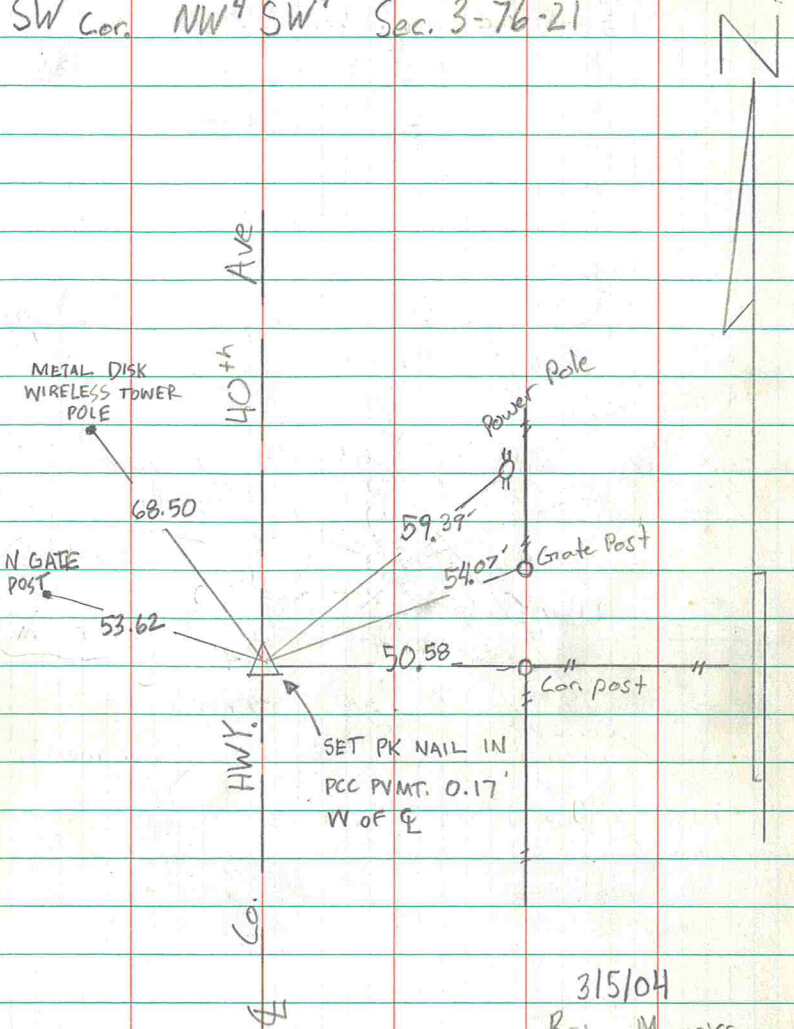 SW Cor. NW⁴ SW⁴ Sec. 3-76-21
N
40th Ave
METAL DISK
WIRELESS TOWER
POLE
Power Pole
68.50
59.39'
N GATE
POST
54.07'
Gate Post
53.62
50.58
Con. post
HWY.
SET PK NAIL IN
PCC PVMT. 0.17'
W OF ℄
Co.
℄
3/5/04